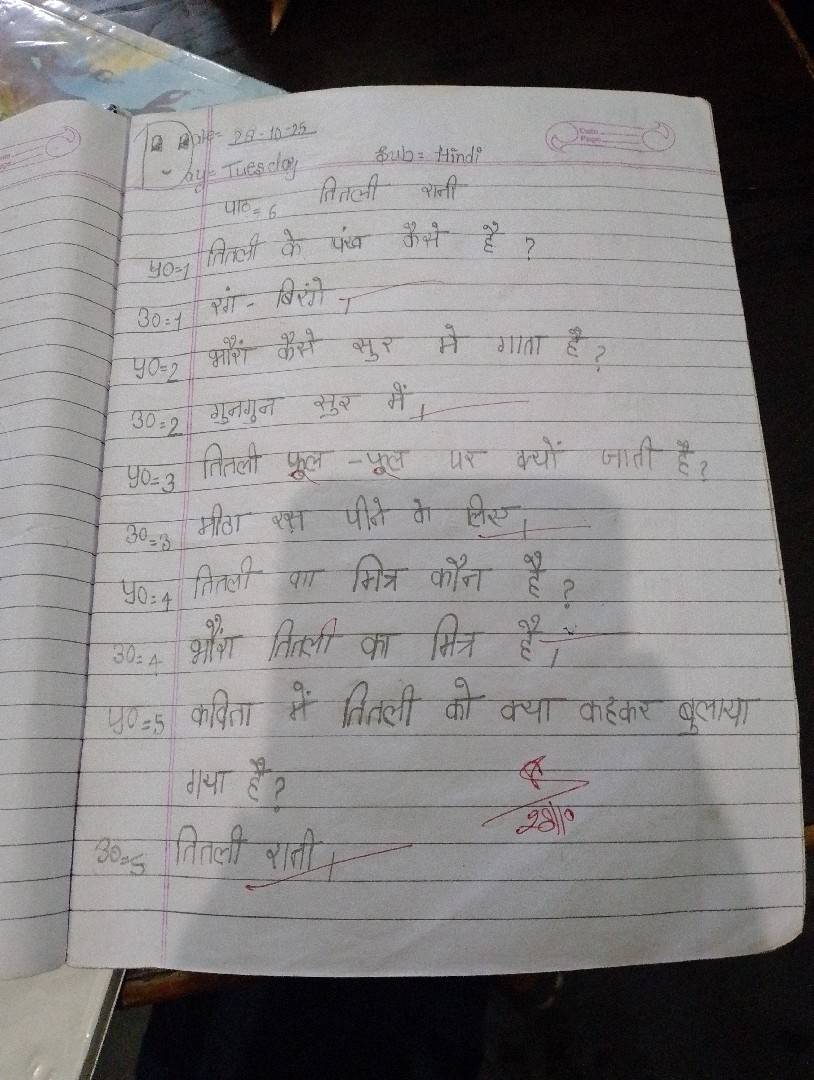 Date= 28-10-25
Day= Tuesday Sub= Hindi
पाठ=6 तितली रानी
प्र0=1 तितली के पंख कैसे है ?
उ0=1 रंग - बिरंगे।
प्र0=2 भौंरा कैसे सुर मे गाता है?
उ0=2 गुनगुन सुर में।
प्र0=3 तितली फूल - फूल पर क्यों जाती है?
उ0=3 मीठा रस पीने के लिए।
प्र0=4 तितली का मित्र कौन है?
उ0=4 भौंरा तितली का मित्र है।
प्र0=5 कविता में तितली को क्या कहकर बुलाया
गया है?
28/10
उ0=5 तितली रानी।